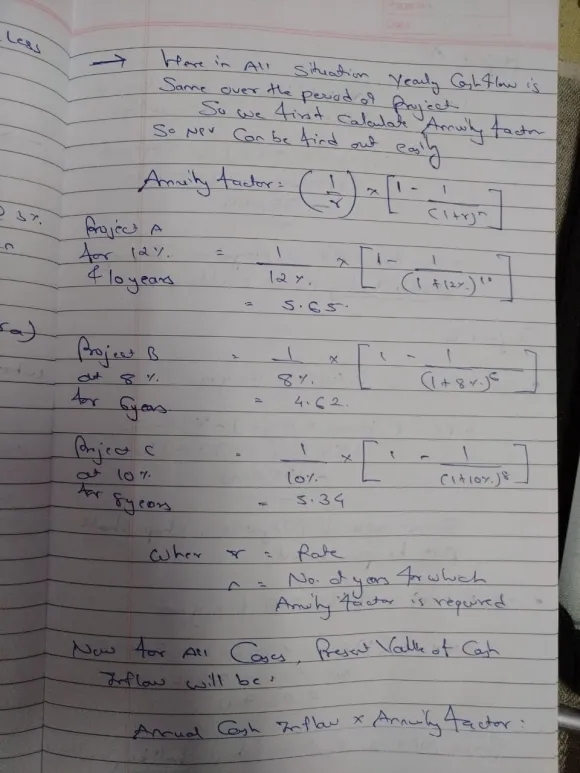 Less
→ Here in All Situation yearly Cash flow is
Same over the period of Project
So we first Calculate Annuity factor
So NPV Can be find out easily
Annuity factor = (1/r) × [1 - 1/(1+r)^n]
3%.
Project A
for 12%. = 1/12%. × [1 - 1/(1+12%.)^10]
& 10 years
= 5.65
Project B = 1/8%. × [1 - 1/(1+8%.)^6]
at 8%.
for 6 years = 4.62
Project C = 1/10%. × [1 - 1/(1+10%.)^8]
at 10%.
for 8 years = 5.34
When r = Rate
n = No. of years for which
Annuity factor is required
Now for All Cases, Present Value of Cash
Inflow will be:
Annual Cash Inflow × Annuity factor: